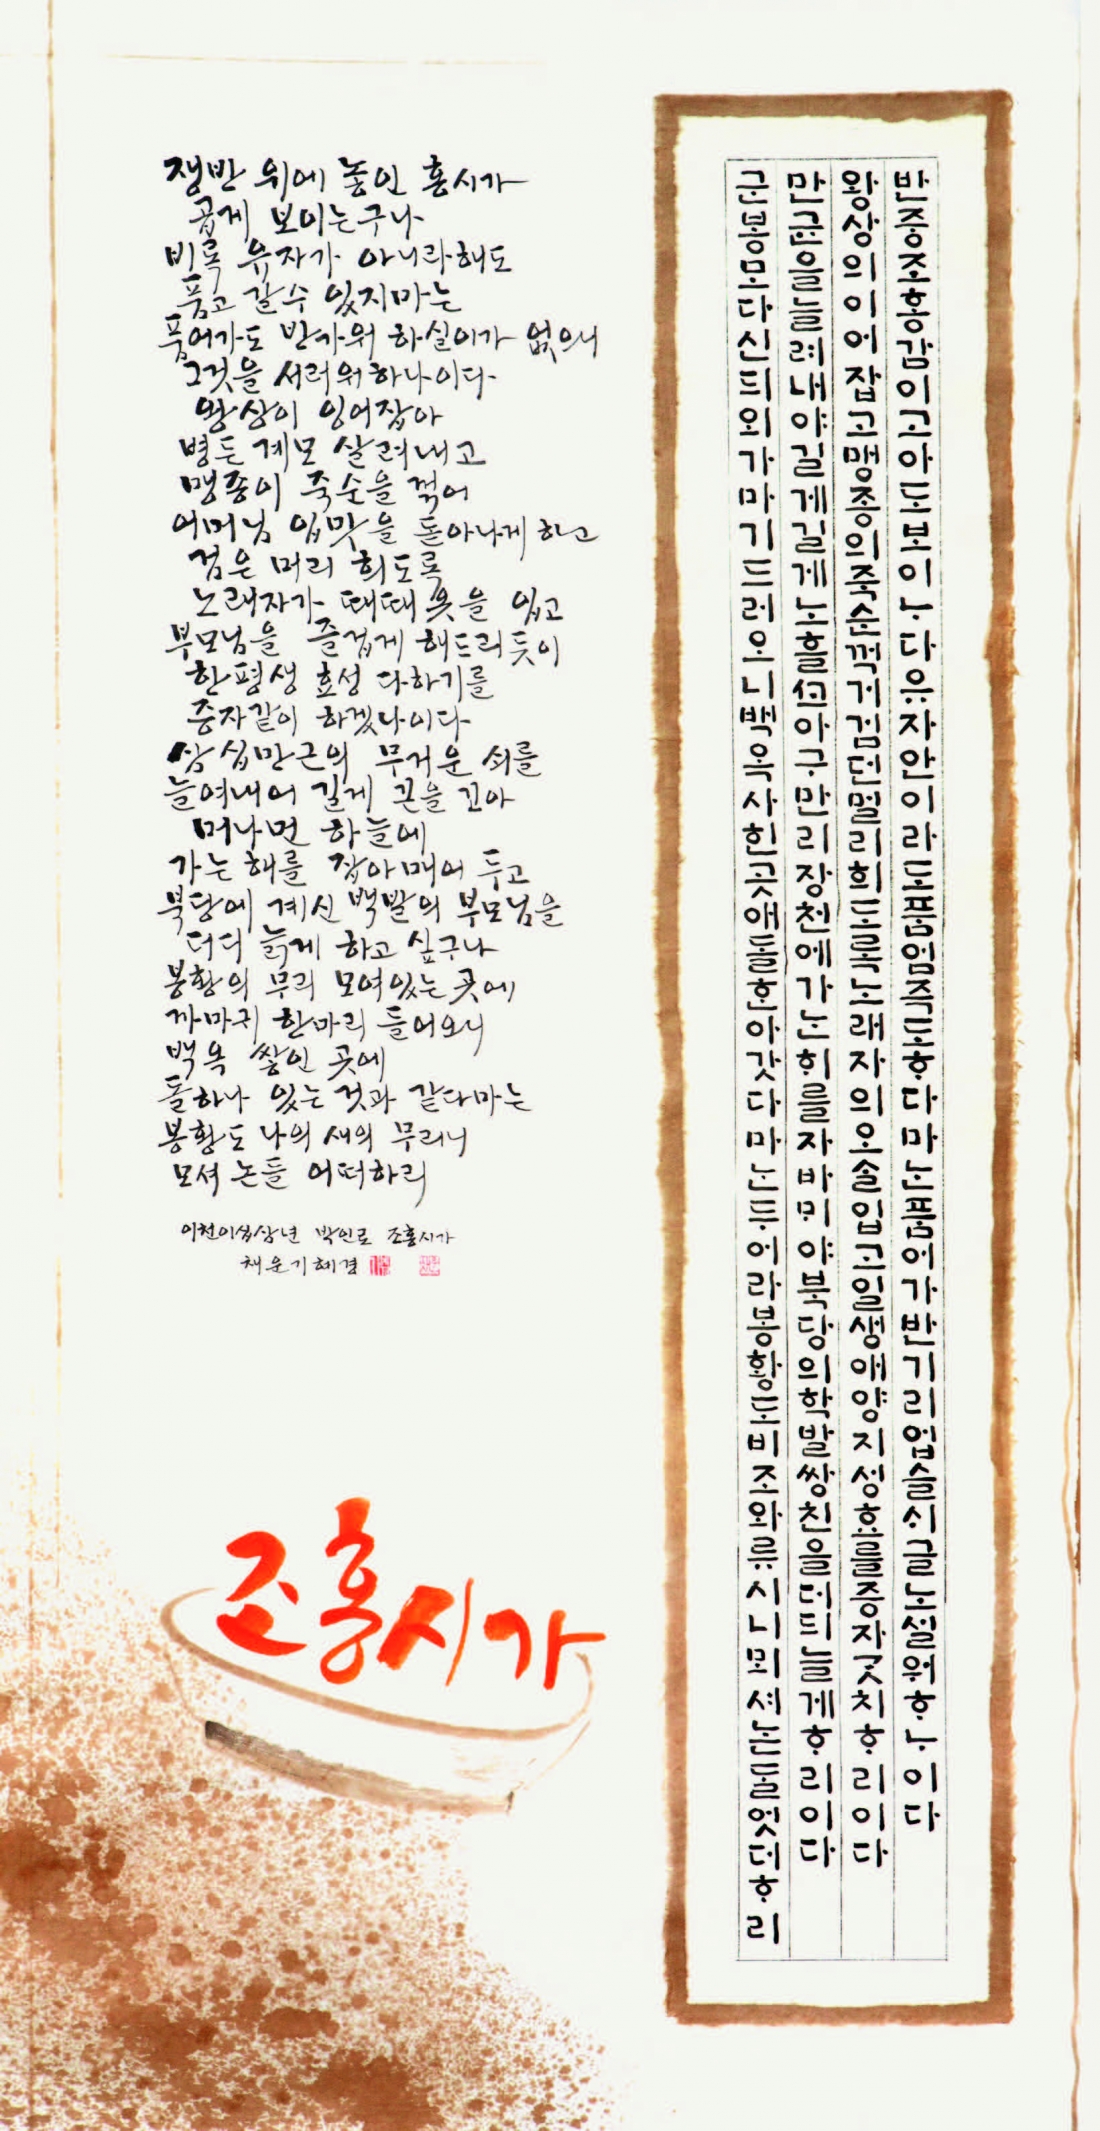 쟁반 위에 놓인 홍시가
곱게 보이는구나
비록 유자가 아니라해도
품고 갈수 있지마는
품어가도 반가워 하실이가 없으니
그것을 서러워하나이다
왕상이 잉어잡아
병든 계모 살려내고
맹종이 죽순을 꺾어
어머님 입맛을 돋아나게 하고
검은 머리 희도록
노래자가 때때옷을 입고
부모님을 즐겁게 해드리듯이
한평생 효성 다하기를
증자같이 하겠나이다
삼십만근의 무거운 쇠를
늘여내어 길게 끈을 꼬아
머나먼 하늘에
가는 해를 잡아매어 두고
북당에 계신 백발의 부모님을
더디 늙게 하고 싶구나
봉황의 무리 모여있는 곳에
까마귀 한마리 들어오니
백옥 쌓인 곳에
돌하나 있는 것과 같다마는
봉황도 나의 새의 무리니
모셔 논들 어떠하리
이천이십삼년 박인로 조홍시가
채운 기혜경
조홍시가
반중조홍감이고아도보이ᄂᆞ다유자안이라도품엄즉도ᄒᆞ다마ᄂᆞᆫ품어가반기리업슬시글노설워ᄒᆞᄂᆞ이다
왕상의이어잡고맹종의죽순꺽거검던멀리희도록노래자의오슬입고일생애양지성효를증자ᄀᆞᆺ치ᄒᆞ리이다
만균을늘려내야길게길게노흘ᄭᅩ아구만리장천에가ᄂᆞᆫᄒᆡ를자바ᄆᆡ야북당의학발쌍친을더듸늘게ᄒᆞ리이다
군봉모다신듸외가마기드러오니백옥사힌곳애돌ᄒᆞᆫ아갓다마ᄂᆞᆫ두어라봉황도비조와류시니뫼셔논들엇더ᄒᆞ리